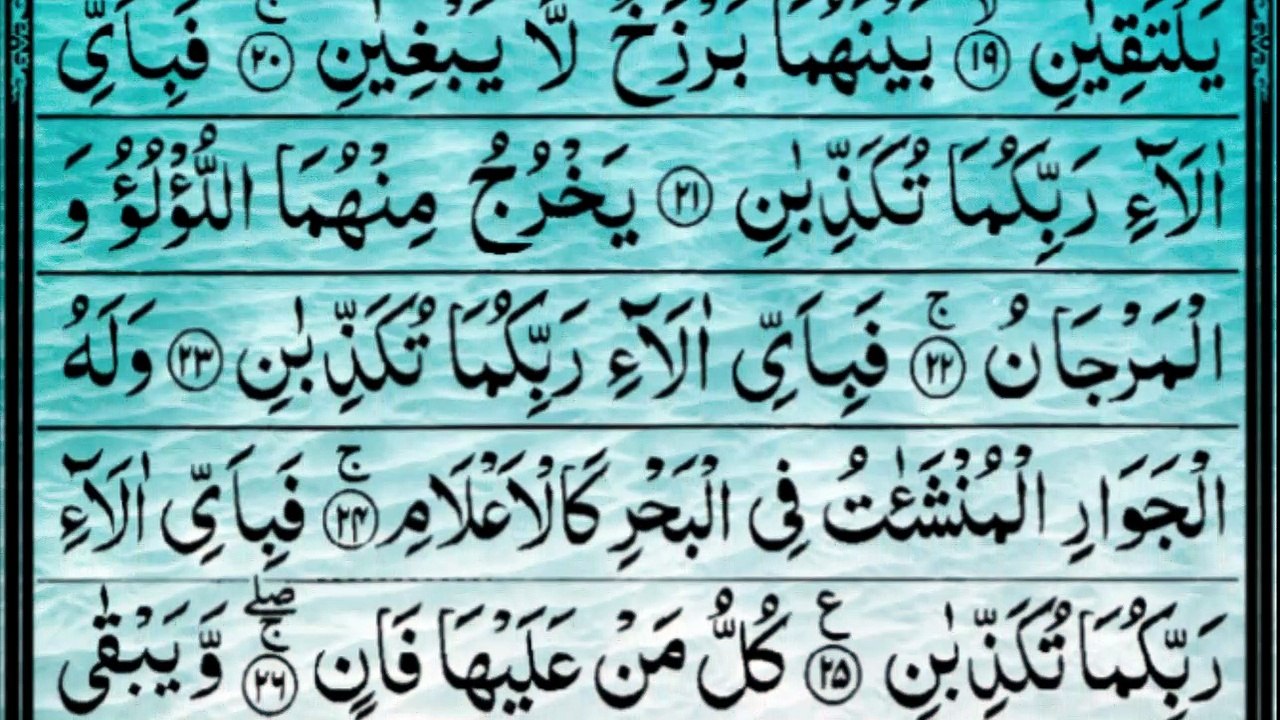 يَلۡتَقِيٰنِ ۙ‏﴿۱۹﴾ بَيۡنَهُمَا بَرۡزَخٌ لَّا يَبۡغِيٰنِ‌ ۚ‏﴿۲۰﴾ فَبِاَىِّ
اٰلَاۤءِ رَبِّكُمَا تُكَذِّبٰنِ ‏﴿۲۱﴾ يَخۡرُجُ مِنۡهُمَا اللُّؤۡلُؤُ وَ
الۡمَرۡجَانُ‌ ۚ‏﴿۲۲﴾ فَبِاَىِّ اٰلَاۤءِ رَبِّكُمَا تُكَذِّبٰنِ ‏﴿۲۳﴾ وَلَهُ
الۡجَوَارِ الۡمُنۡشَـٰٔتُ فِى الۡبَحۡرِ كَالۡاَعۡلَامِ‌ۚ‏﴿۲۴﴾ فَبِاَىِّ اٰلَاۤءِ
رَبِّكُمَا تُكَذِّبٰنِ ‏ع﴿۲۵﴾ كُلُّ مَنۡ عَلَيۡهَا فَانٍ ‌ۖۚ‏﴿۲۶﴾ وَّيَبۡقٰى